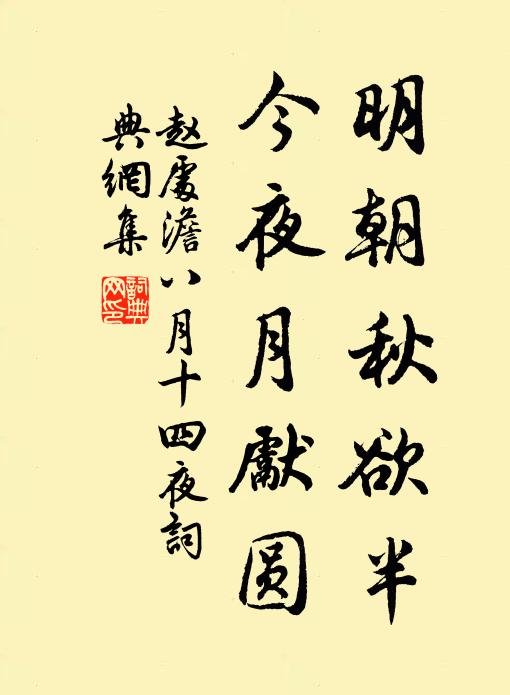 明朝秋欲半
今夜月獻圆
赵處澹八月十四夜詞
典網集
詞典网印